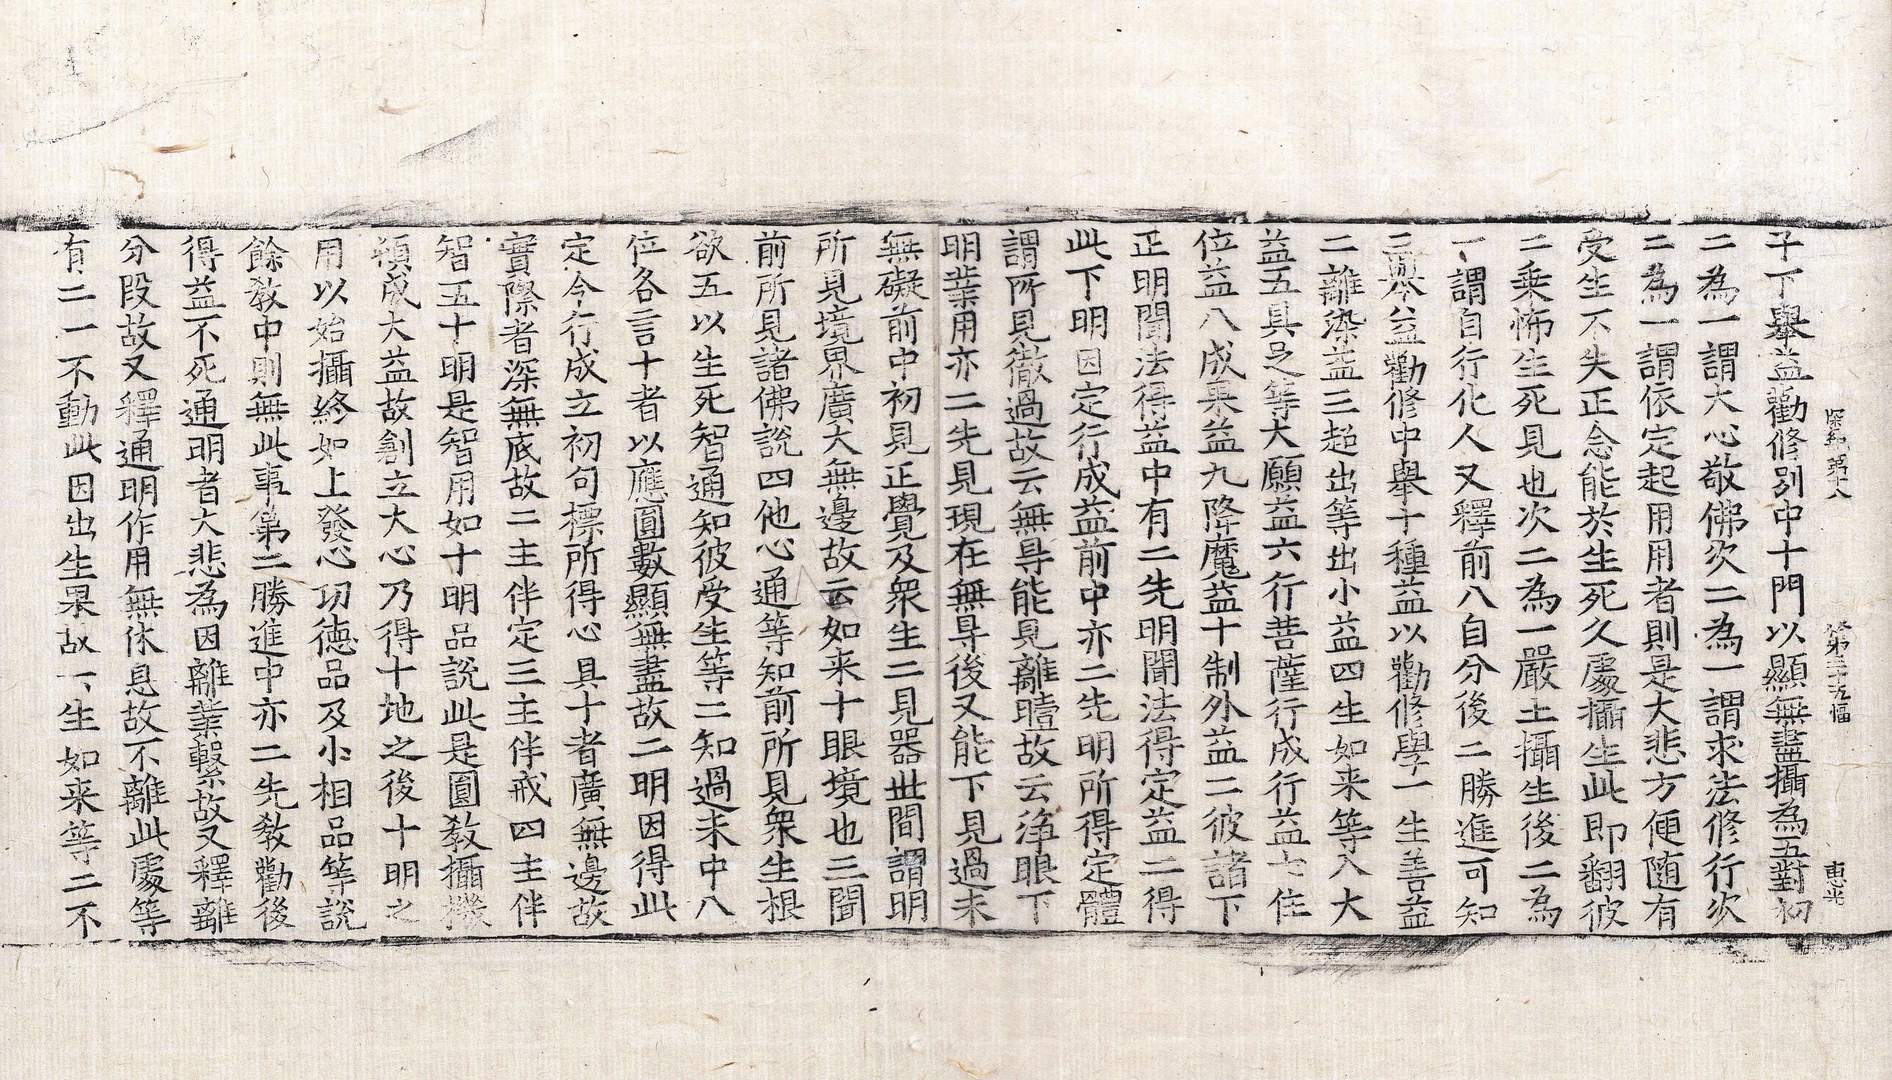 深紀第十八　卷第三十五幅　惠光
子下舉益勸修別中十門以顯無盡攝為五對初
二為一謂大心敬佛次二為一謂求法修行次
二為一謂依定起用用者則是大悲方便随有
受生不失正念能於生死久處攝生此即翻彼
二乗怖生死見也次二為一嚴土攝生後二為
一謂自行化人又釋前八自分後二勝進可知
三舉益勸修中舉十種益以勸修學一生善益
二離染益三超出等出小益四生如来等入大
益五具足等大願益六行菩薩行成行益七住
位益八成乗益九降魔益十制外益二彼諸下
正明聞法得益中有二先明聞法得定益二得
此下明因定行成益前中亦二先明所得定體
謂所見徹過故云無㝵能見離瞖故云淨眼下
明業用亦二先見現在無㝵後又能下見過未
無礙前中初見正覺及衆生二見器世間謂明
所見境界廣大無邊故云如来十眼境也三聞
前所見諸佛説四他心通等知前所見衆生根
欲五以生死智通知彼受生等二知過未中八
位各言十者以應圓數顯無盡故二明因得此
定今行成立初句標所得心具十者廣無邊故
實際者深無底故二主伴定三主伴戒四主伴
智五十明是智用如十明品説此是圓教攝機
頓成大益故創立大心乃得十地之後十明之
用以始攝終如上發心功德品及小相品等説
餘教中則無此事第二勝進中亦二先教勸後
得益不死通明者大悲為因離業繫故又釋離
分段故又釋通明作用無休息故不離此處等
有二一不動此因出生果故一生如来等二不